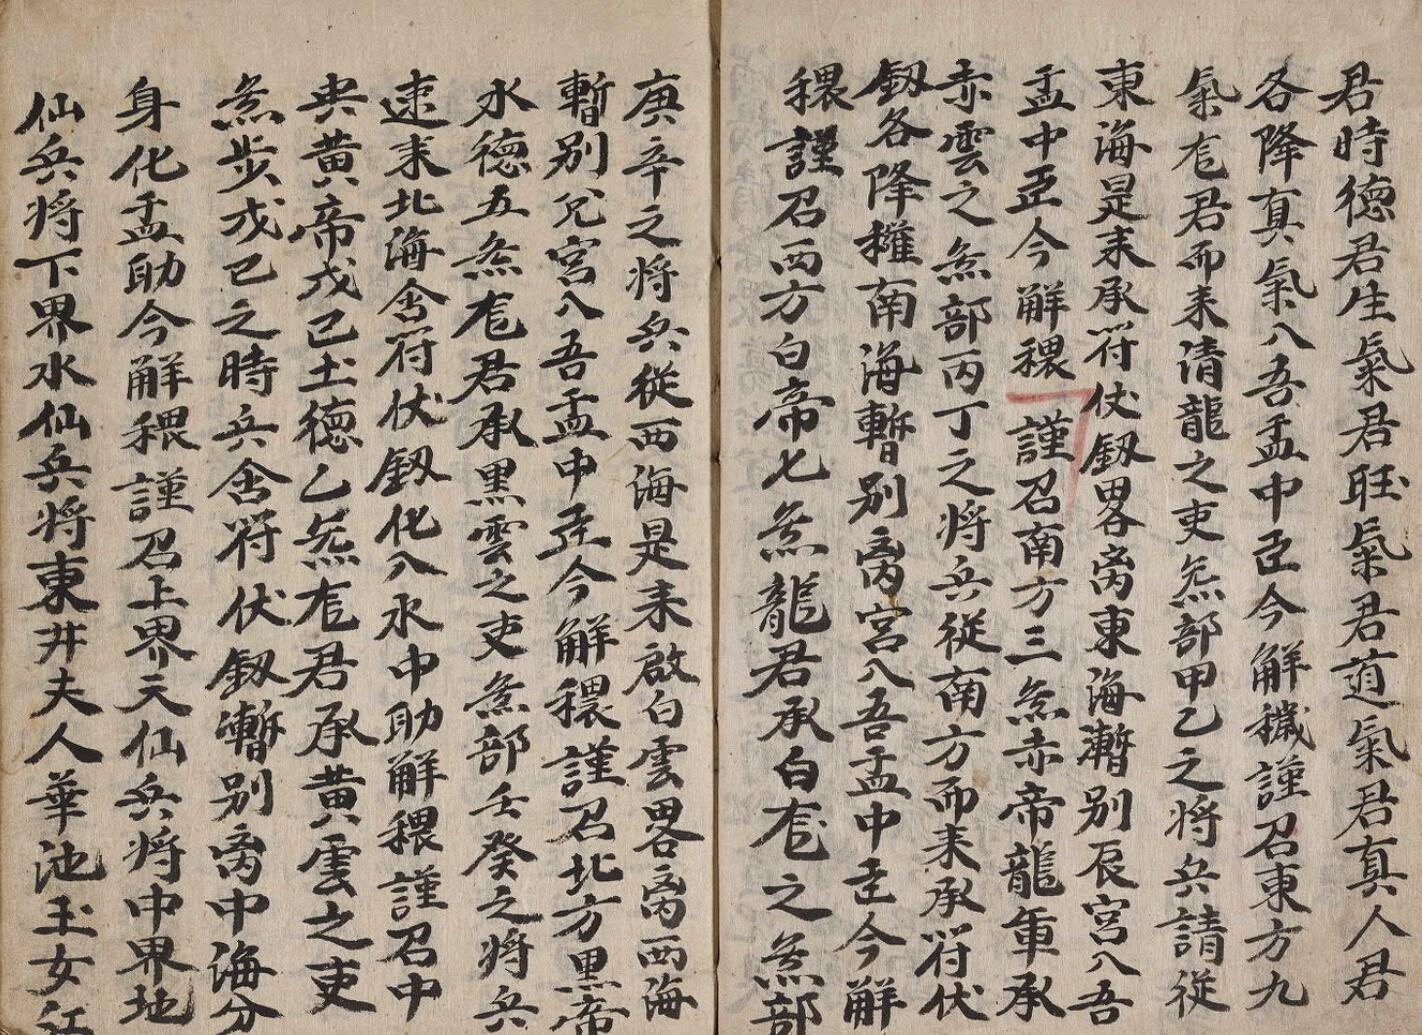 君時德君生氣君旺氣君道氣君真人君
各降真氣入吾盂中臣今解穢謹召東方九
氣君而来清龍之吏炁部甲乙之将兵請従
東海是来承符伏釼畧离東海暫別辰宮入吾
盂中臣今解穢謹召南方三炁赤帝龍軍承
赤雲之炁部丙丁之将兵従南方而来承符伏
釼各降權南海暫別离宮入吾盂中臣今解
穢謹召西方白帝七炁龍君承白之炁部
庚辛之将兵従西海是来啟白雲畧离西海
暫別兌宮入吾盂中臣今解穢謹召北方黒帝
水德五炁君承黒雲之吏炁部壬癸之将兵
速来北海含符伏釼化入水中助解穢謹召中
央黄帝戊己土德乙炁君承黄雲之吏
炁步戊己之時兵含符伏釼暫別离中海分
身化盂助今解穢謹召上界天仙兵将中界地
仙兵将下界水仙兵将東井夫人華池玉女江